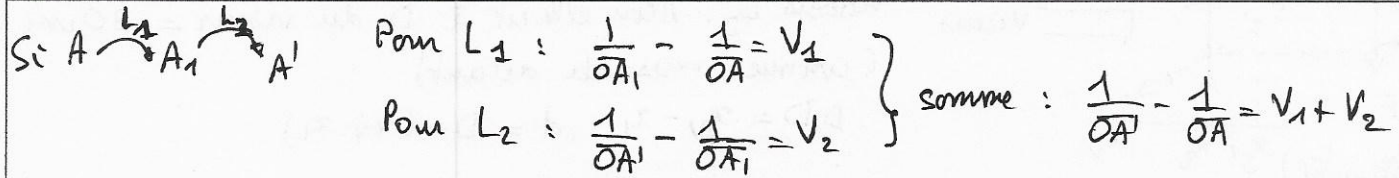 Si A L1 A1 L2 A' Pour L1 : 1/OA1 - 1/OA = V1
Pour L2 : 1/OA' - 1/OA1 = V2 } somme : 1/OA' - 1/OA = V1 + V2